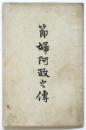 節婦阿政之傳